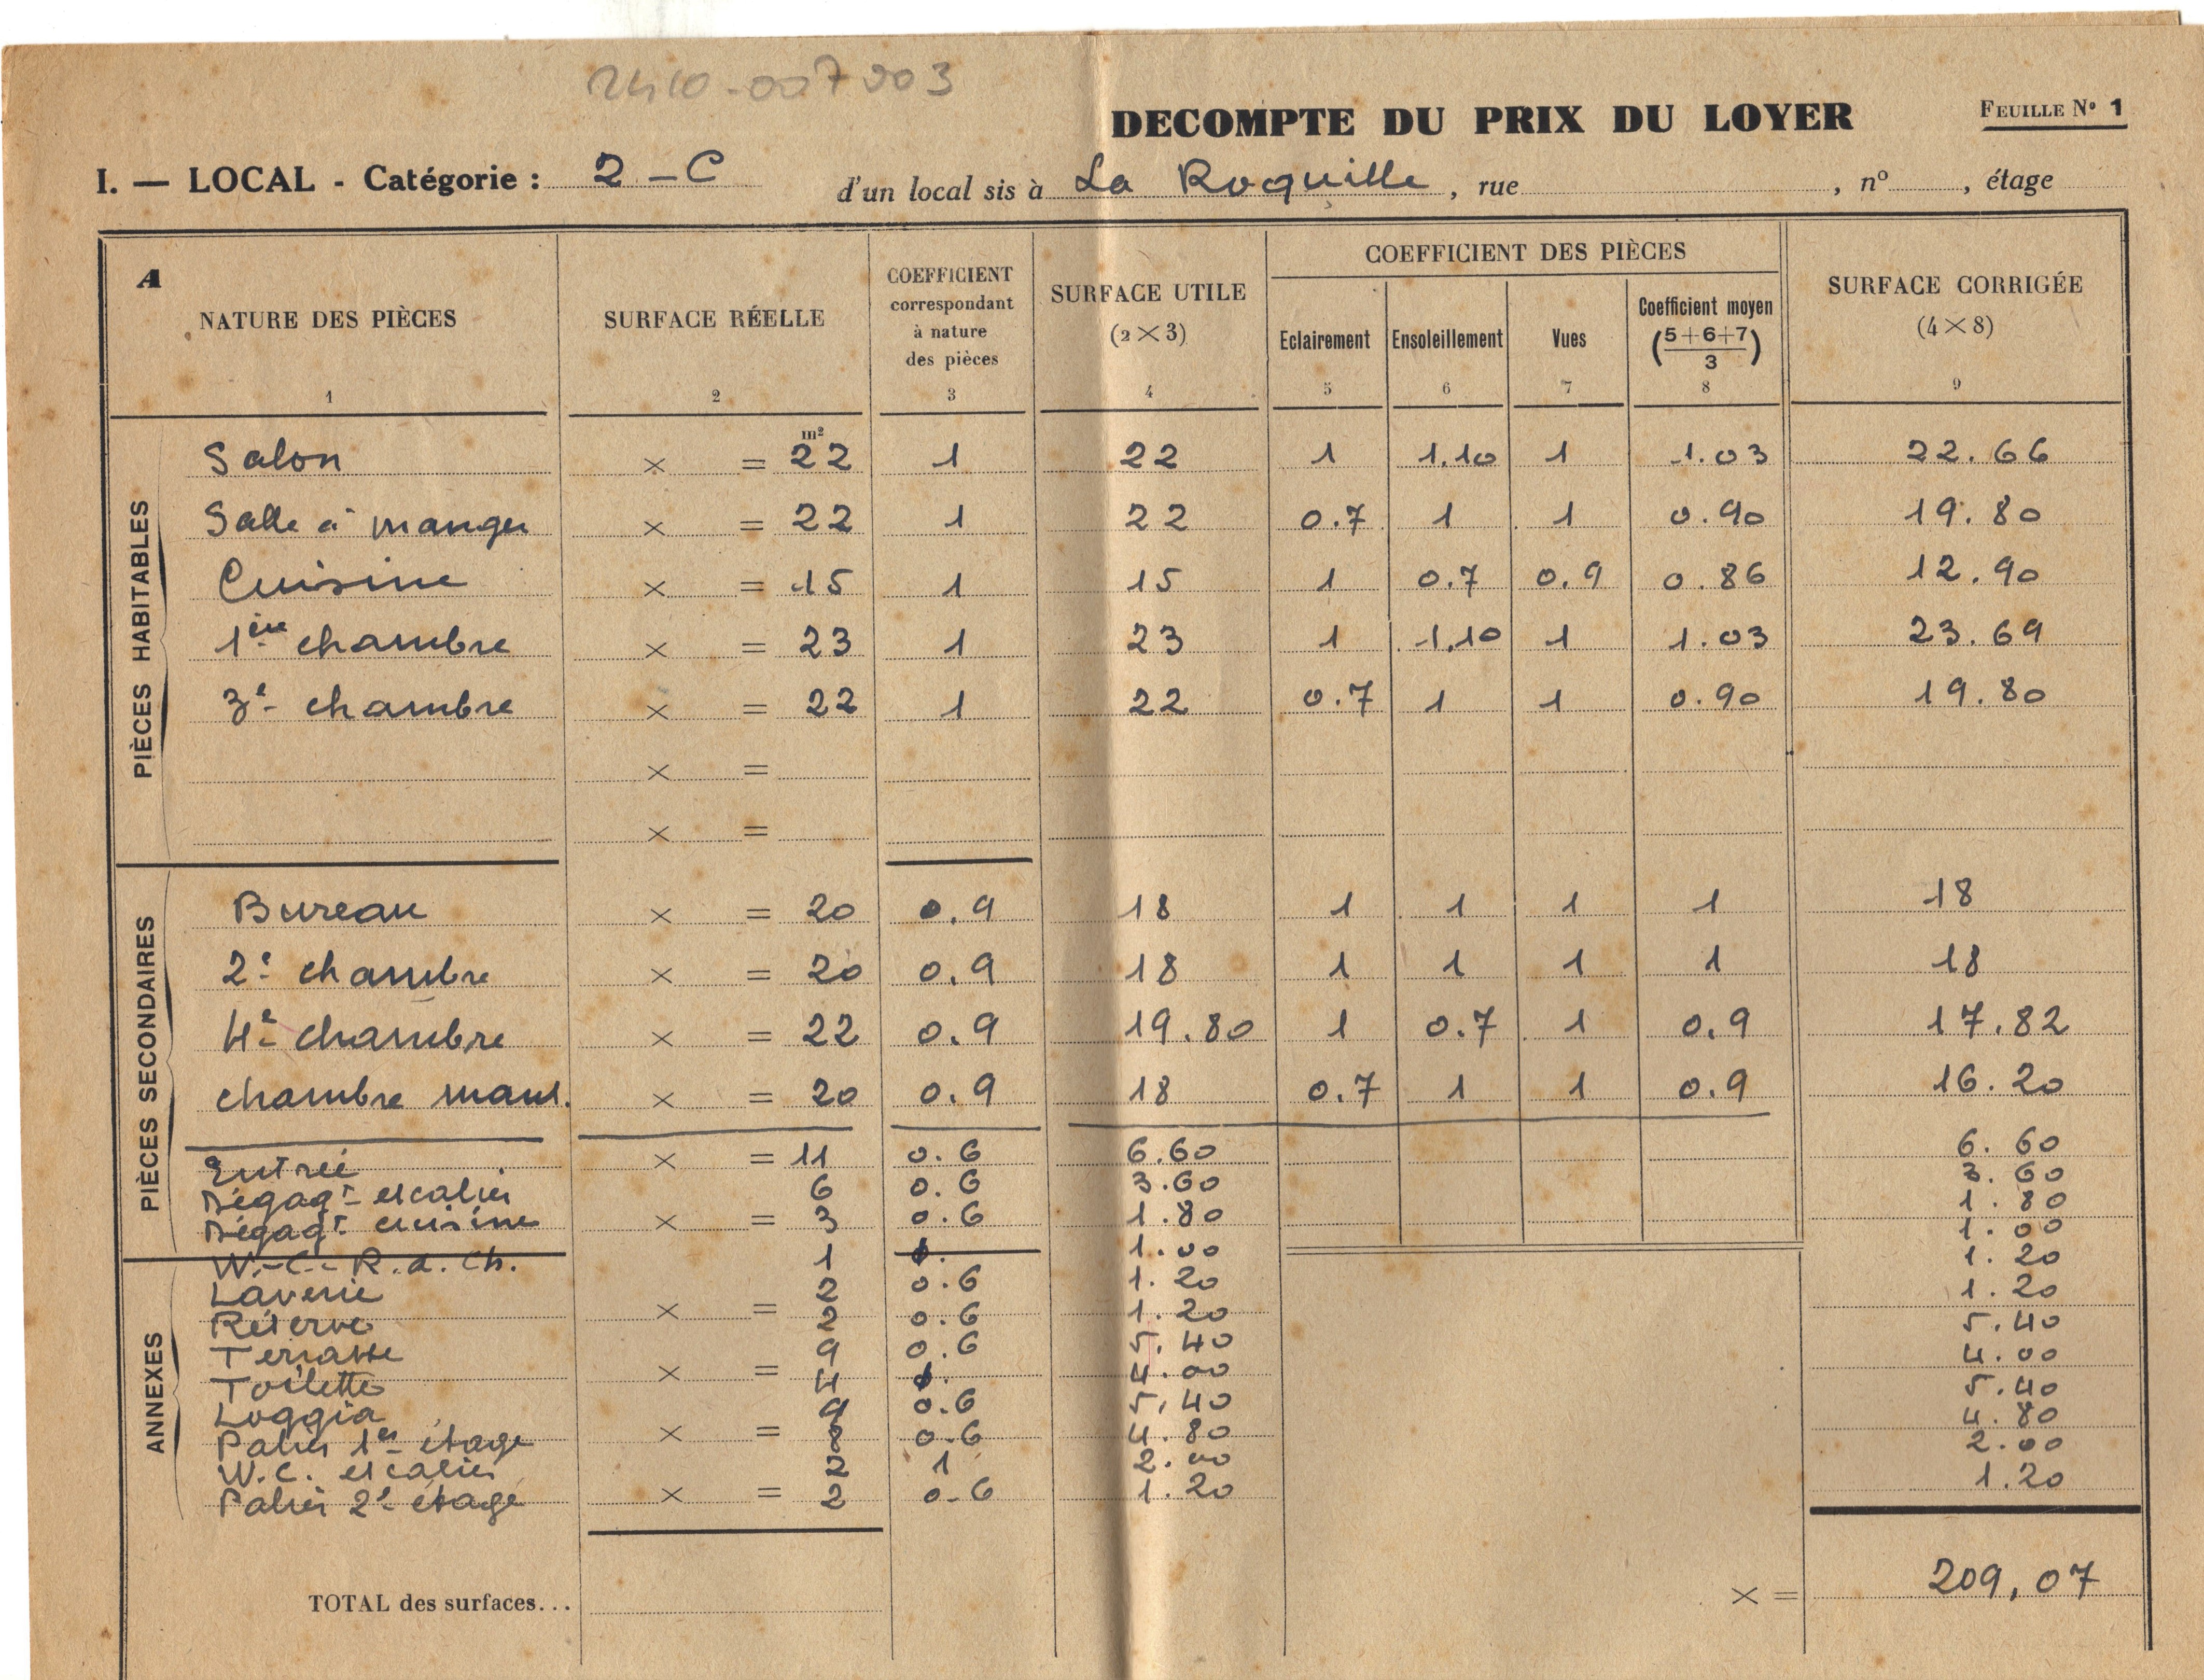 2410-007 003
DECOMPTE DU PRIX DU LOYER
FEUILLE No 1
I. — LOCAL - Catégorie : 2 - C d'un local sis à La Roquille, rue , no , étage
A
NATURE DES PIÈCES
1
SURFACE RÉELLE
2
COEFFICIENT
correspondant
à nature
des pièces
3
SURFACE UTILE
(2 × 3)
4
COEFFICIENT DES PIÈCES
Eclairement
5
Ensoleillement
6
Vues
7
Coefficient moyen
(5+6+7
3)
8
SURFACE CORRIGÉE
(4 × 8)
9
PIÈCES HABITABLES
m²
Salon × = 22 1 22 1 1.10 1 1.03 22.66
Salle à manger × = 22 1 22 0.7 1 1 0.90 19.80
Cuisine × = 15 1 15 1 0.7 0.9 0.86 12.90
1ère chambre × = 23 1 23 1 1.10 1 1.03 23.69
3e chambre × = 22 1 22 0.7 1 1 0.90 19.80
× =
× =
PIÈCES SECONDAIRES
Bureau × = 20 0.9 18 1 1 1 1 18
2e chambre × = 20 0.9 18 1 1 1 1 18
4e chambre × = 22 0.9 19.80 1 0.7 1 0.9 17.82
chambre mans. × = 20 0.9 18 0.7 1 1 0.9 16.20
Entrée × = 11 0.6 6.60 6.60
Dégagt escalier 6 0.6 3.60 3.60
Dégagt cuisine × = 3 0.6 1.80 1.80
ANNEXES
W.-C.- R.d.Ch. 1 1. 1.00 1.00
Laverie 2 0.6 1.20 1.20
Réserve × = 2 0.6 1.20 1.20
Terrasse 9 0.6 5.40 5.40
Toilette × = 4 1. 4.00 4.00
Loggia 9 0.6 5.40 5.40
Palier 1er étage × = 8 0.6 4.80 4.80
W.C. escalier 2 1 2.00 2.00
Palier 2e étage × = 2 0.6 1.20 1.20
TOTAL des surfaces... × = 209,07